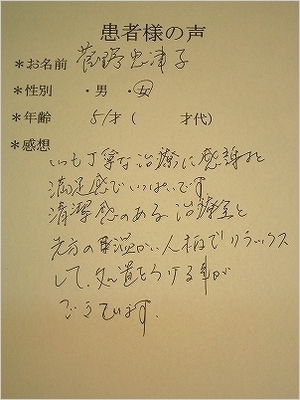 患者様の声
＊お名前 菅野恵津子
＊性別 ・男 ・女
＊年齢 51才( 才代)
＊感想
いつも丁寧な治療に感謝と
満足感でいっぱいです。
清潔感のある治療室と
先方の温かい人柄でリラックス
して、処置をうける事が
できています。